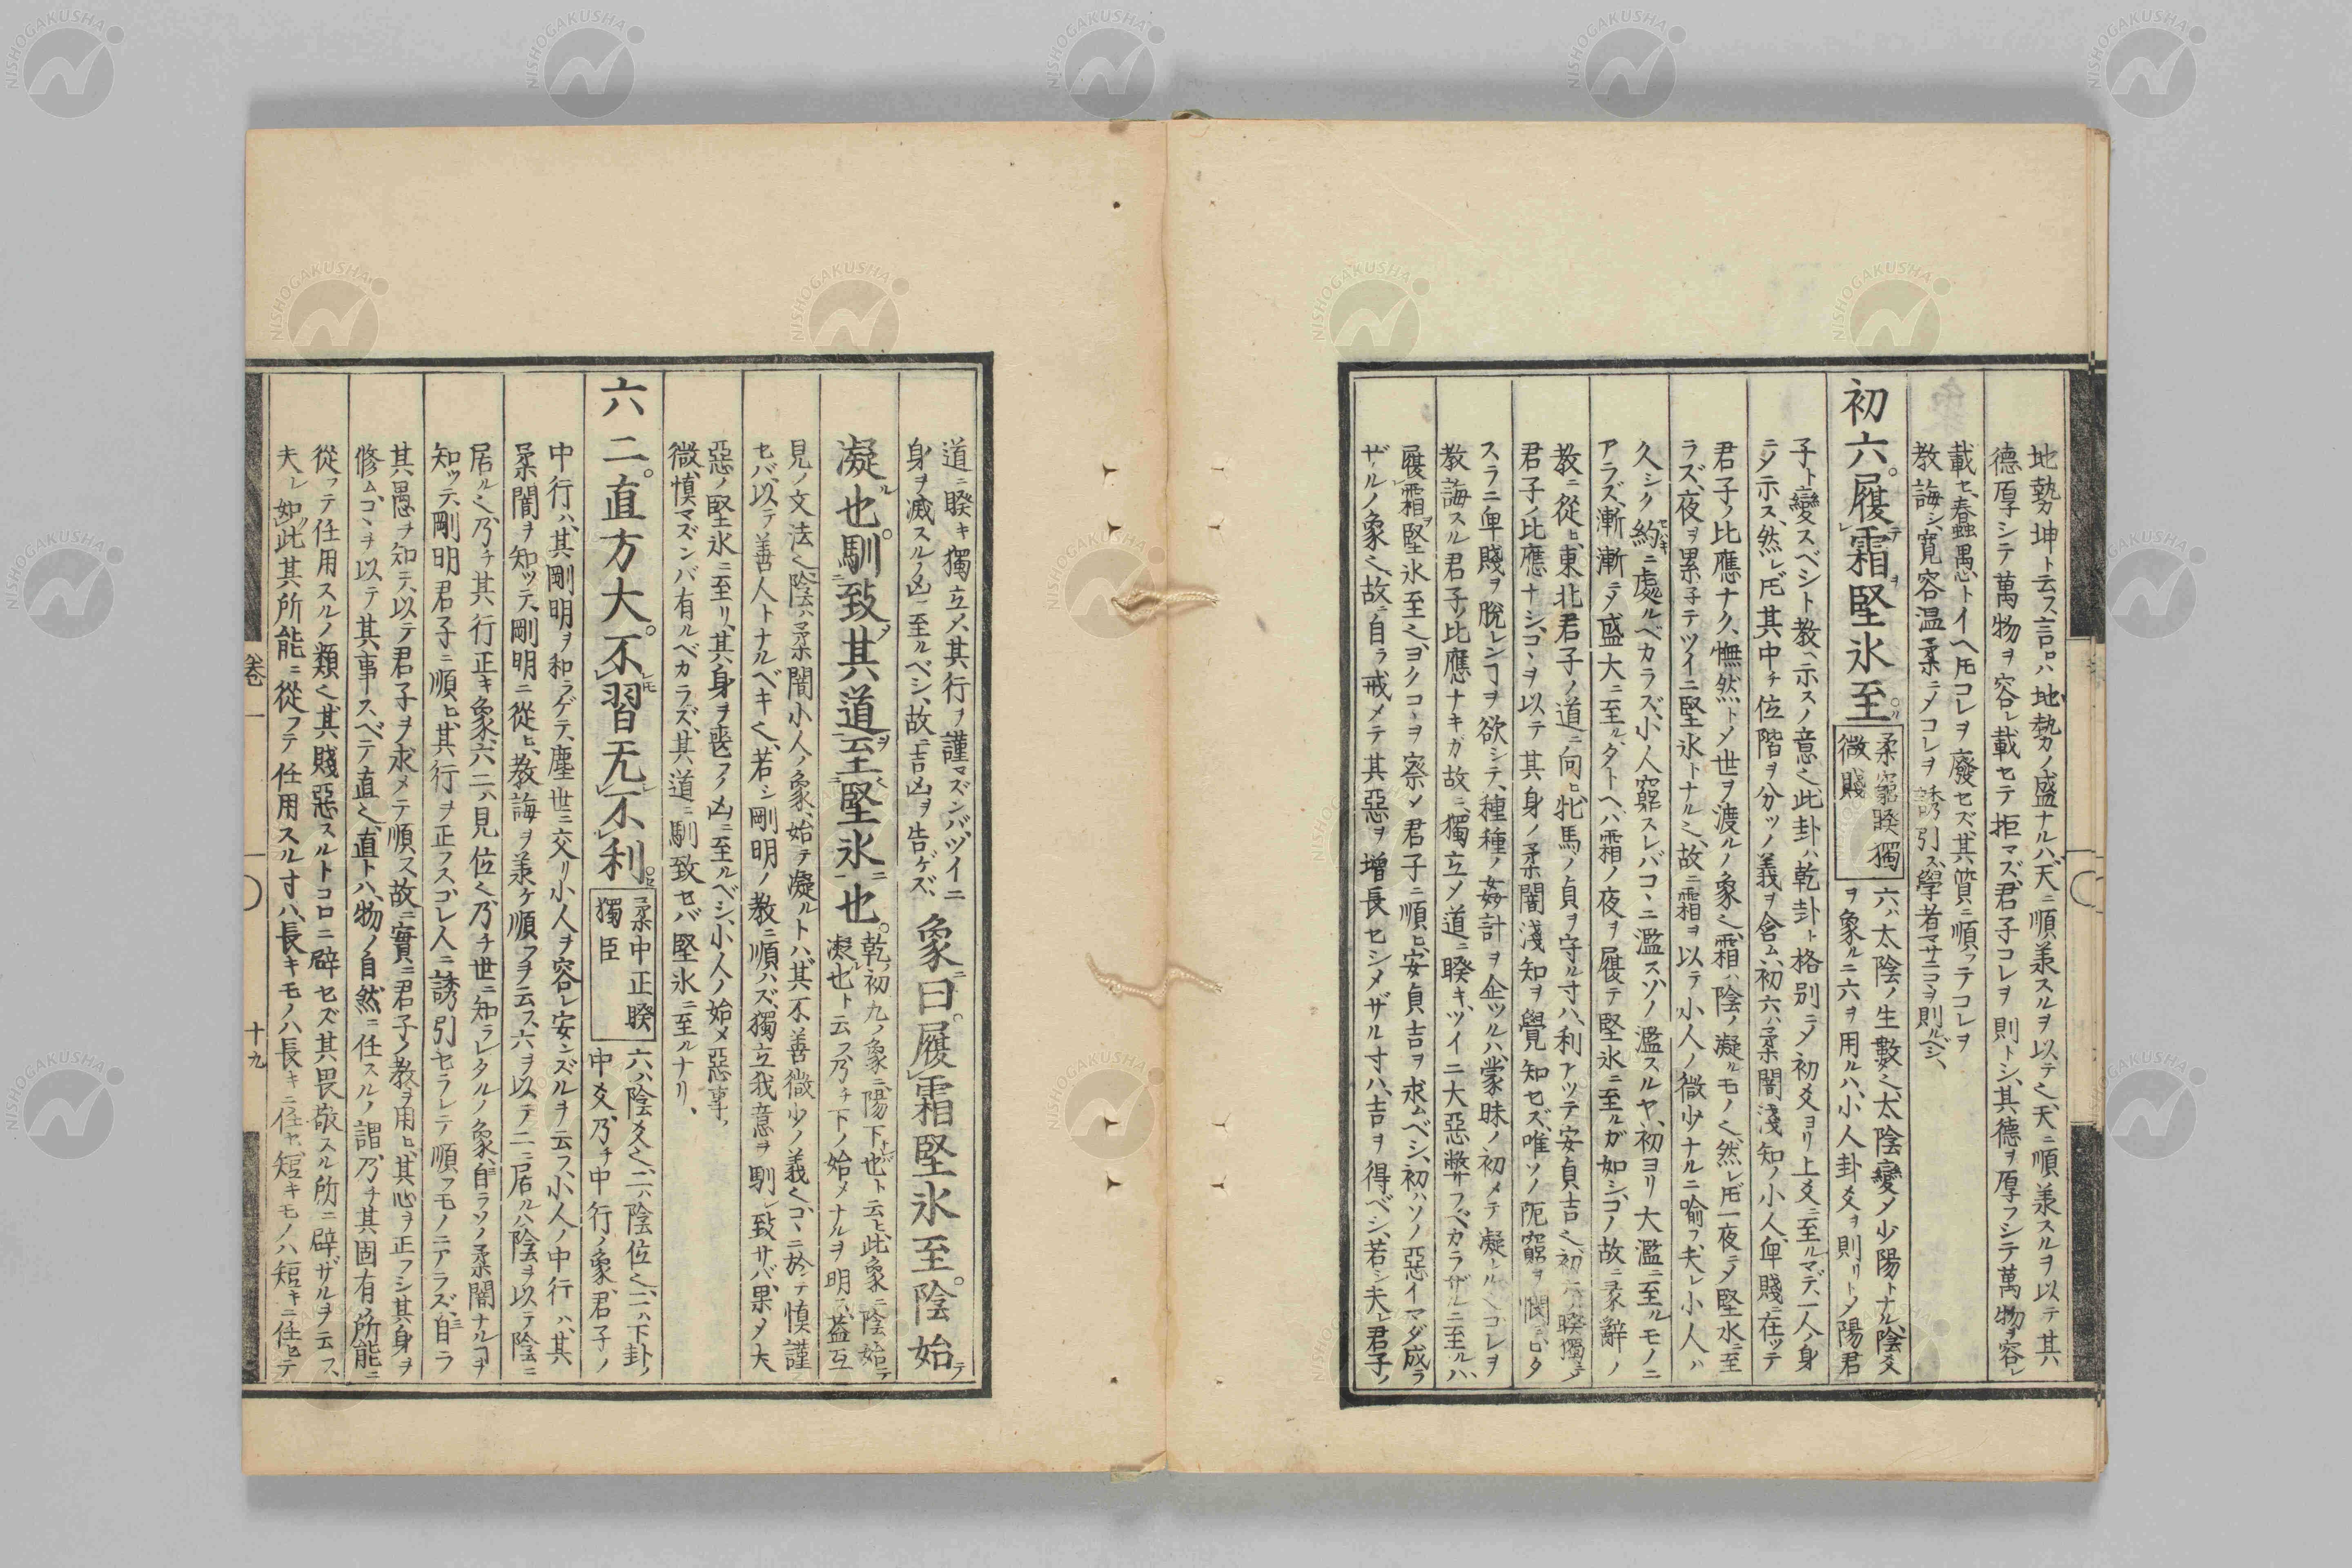 地勢坤ト云フ言ロハ地勢ノ盛ナルハ天ニ順羕スルヲ以テ之天ニ順羕スルヲ以テ其
德厚シテ萬物ヲ容レ載セテ拒マズ君子コレヲ則トシ其德ヲ厚フシテ萬物ヲ容レ
載セ、蠢蟲愚惷トイヘ𪜈コレヲ廢セズ其質ニ順フテコレヲ
教誨シ寬容温柔ニメコレヲ誘引ス學者マサニコヲ則ルベシ、
初六。履テ霜ヲ堅氷至ル。
柔窮睽獨
微賤
六ハ太陰ノ生數之太陰變メ少陽トナル陰爻
ヲ象ル二六ヲ用ルハ小人卦爻ヲ則リトメ陽君
子ト變スベシト教ヘ示スノ意之此卦ハ乾卦ト格別ニメ初爻ヨリ上爻ニ至ルマデ一人ノ身
ニノ示ス、然レ𪜈其中チ位階ヲ分ツノ義ヲ含ム、初六ハ柔闇淺知ノ小人卑賤ニ在ッテ
君子ノ比應ナク、憮然トメ世ヲ渡ルノ象之、霜ハ陰ノ凝ルモノ之然レ𪜈一夜ニメ堅氷ニ至
ラズ、夜ヲ累子テツイニ堅氷トナル之、故ニ霜ヲ以テ小人ノ微少ナルニ喻フ、夫レ小人ハ
久シク約ニ處ルベカラズ、小人窮スレバコヽニ濫スソノ濫スルヤ、初ヨリ大濫ニ至ルモノニ
アラズ、漸漸ニメ盛大ニ至ル、タトヘハ霜ノ夜ヲ履テ堅氷ニ至ルガ如シ、コノ故ニ彖辭ノ
教ニ從ヒ、東北君子ノ道ニ向ヒ、牝馬ノ貞ヲ守ル寸ハ、利アツテ安貞吉之初六ハ睽獨ニメ
君子ノ比應ナシ、コヽヲ以テ其身ノ柔闇淺知ヲ覺知セズ、唯ソノ阨窮ヲ憫ヒタ
スラニ卑賤ヲ脫レンヿヲ欲シテ、種種ノ姦計ヲ企ツルハ、蒙昧ノ初メテ凝ル之コレヲ
教誨スル君子ノ比應ナキガ故ニ、獨立メ道ニ睽キ、ツイニ大惡弊サフベカラザルニ至ルハ、
履霜堅氷至之、ヨクコヽヲ察メ君子ニ順ヒ、安貞吉ヲ求ムベシ、初ハソノ惡イマダ成ラ
ザルノ象之、故ニ自ラ戒メテ其惡ヲ增長セシメザル寸ハ、吉ヲ得ベシ、若シ夫レ君子ノ
道ニ睽キ獨立メ其行ヲ謹マズンバ、ツイニ
身ヲ滅スルノ凶ニ至ルベシ、故ニ吉凶ヲ告ゲズ、
象ニ曰。履霜堅氷至。陰始テ
凝ル也。馴致メ其道ヲ至堅氷ニ也。
乾ノ初九ノ象ニ陽下ナレバ也ト云ヒ、此象ニ陰始テ
凝ル也ト云フ乃チ下ノ始メナルヲ明ス、蓋互
見ノ文法之陰ハ柔闇小人ノ象、始テ凝ルトハ、其不善微少ノ義之コヽニ於テ慎謹
セバ、以テ善人トナルベキ之、若シ剛明ノ教ニ順ハズ、獨立我意ヲ馴レ致サバ、果メ大
惡ノ堅氷ニ至リ、其身ヲ喪フノ凶ニ至ルベシ、小人ノ始メ惡事ノ
微慎マズンバ有ルベカラズ、其道ニ馴致セバ堅氷ニ至ルナリ、
六二。直方大。不習𪜈无不利。
柔中正睽
獨臣
六ハ陰爻之二ハ陰位之、二ハ下卦ノ
中爻乃チ中行ノ象、君子ノ
中行ハ、其剛明ヲ和ラゲテ、塵世ニ交リ小人ヲ容レ安ンズルヲ云フ、小人ノ中行ハ、其
柔闇ヲ知ッテ、剛明ニ從ヒ、教誨ヲ羕ケ順フヲ云ス、六ヲ以テ二ニ居ルハ陰ヲ以テ陰ニ
居ル之乃チ其行正キ象、六二ハ見位之、乃チ世ニ知ラレタルノ象、自ラソノ柔闇ナルヿヲ
知ッテ、剛明君子ニ順ヒ、其行ヲ正フス、コレ人ニ誘引セラレテ順フモノニアラズ、自ラ
其愚ヲ知テ、以テ君子ヲ求メテ順ス故ニ實ニ君子ノ教ヲ用ヒ、其心ヲ正フシ其身ヲ
修ム、コヽヲ以テ其事スベテ直之、直トハ、物ノ自然ニ任スルノ謂、乃チ其固有ノ所能ニ
從フテ任用スルノ類之其賤惡スルトコロニ辟セズ其畏敬スル所ニ辟ザルヲ云ス、
夫レ如此其所能ニ從フテ任用スル寸ハ、長キモノハ長キニ任セ、短キモノハ短キニ任セテ
卷一
十九